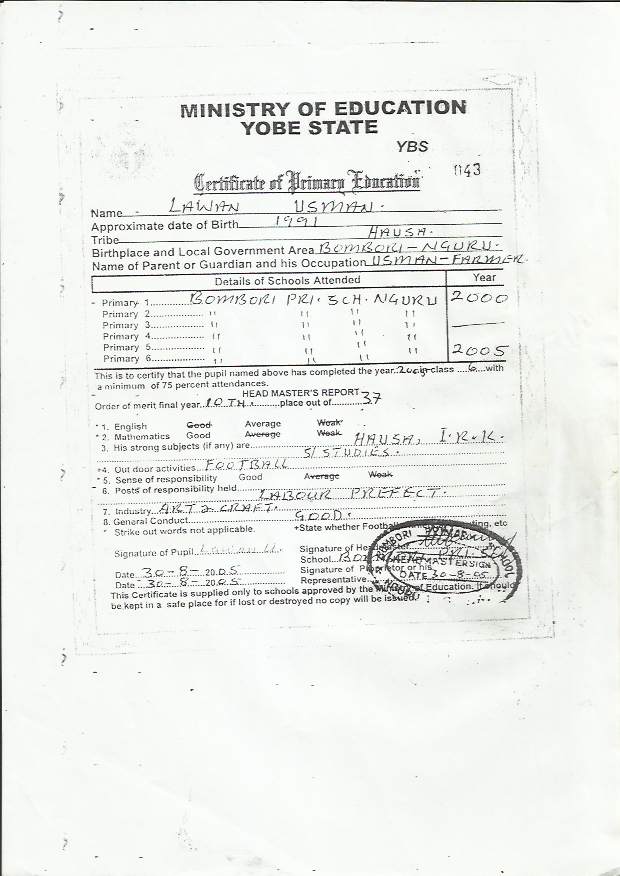 MINISTRY OF EDUCATION
YOBE STATE
YBS
043
Certificate of Primary Education
Name LAWAN USMAN.
Approximate date of Birth 1991
Tribe HAUSA.
Birthplace and Local Government Area BOMBORI-NGURU.
Name of Parent or Guardian and his Occupation USMAN-FARMER.
Details of Schools Attended Year
Primary 1 BOMBORI PRI. SCH. NGURU 2000
Primary 2 " " " "
Primary 3 " " " "
Primary 4 " " " "
Primary 5 " " " " 2005
Primary 6 " " " "
This is to certify that the pupil named above has completed the year class 6 with
a minimum of 75 percent attendances.
HEAD MASTER'S REPORT
Order of merit final year 10TH. place out of 37
* 1. English Good Average Weak
* 2. Mathematics Good Average Weak
3. His strong subjects (if any) are HAUSA, I.R.K.
S/STUDIES.
+4. Out door activities FOOTBALL
* 5. Sense of responsibility Good Average Weak
6. Posts of responsibility held LABOUR PREFECT.
7. Industry ART & CRAFT.
8. General Conduct GOOD.
* Strike out words not applicable. +State whether Football etc
Signature of Pupil Lawan U. Signature of
School
Date 30-8-2005 Signature of Proprietor or his
Date 30-8-2005 Representative
This Certificate is supplied only to schools approved by the Ministry of Education. It should
be kept in a safe place for if lost or destroyed no copy will be issued.
BOMBORI PRIMARY SCHOOL
HEADMASTER SIGN
DATE 30-8-05
NGURU